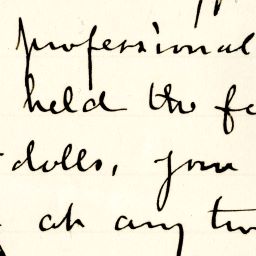 professional
held the fe
dolls, your
at any tw